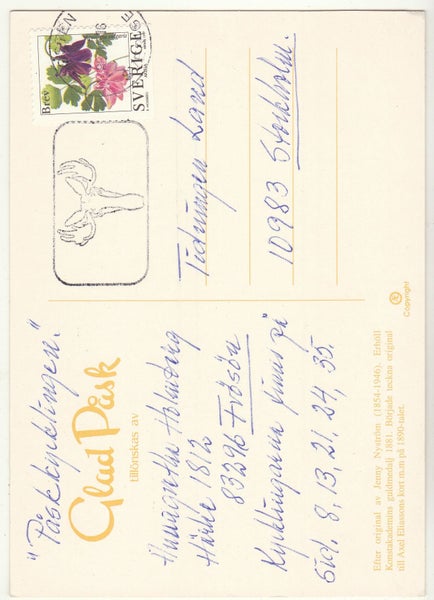 "Påskkycklingen."
Glad Påsk
tillönskas av
Holmberg
Härke 1812
83296 Frösön
Kycklingarna finns på
Sid. 8, 13, 21, 24, 35.
Efter original av Jenny Nyström (1854-1946). Erhöll
Konstakademins guldmedalj 1881. Började teckna original
till Axel Eliassons kort m.m på 1890-talet.
Brev
SVERIGE
Tidningen Land
10983 Stockholm.
Æ
Copyright